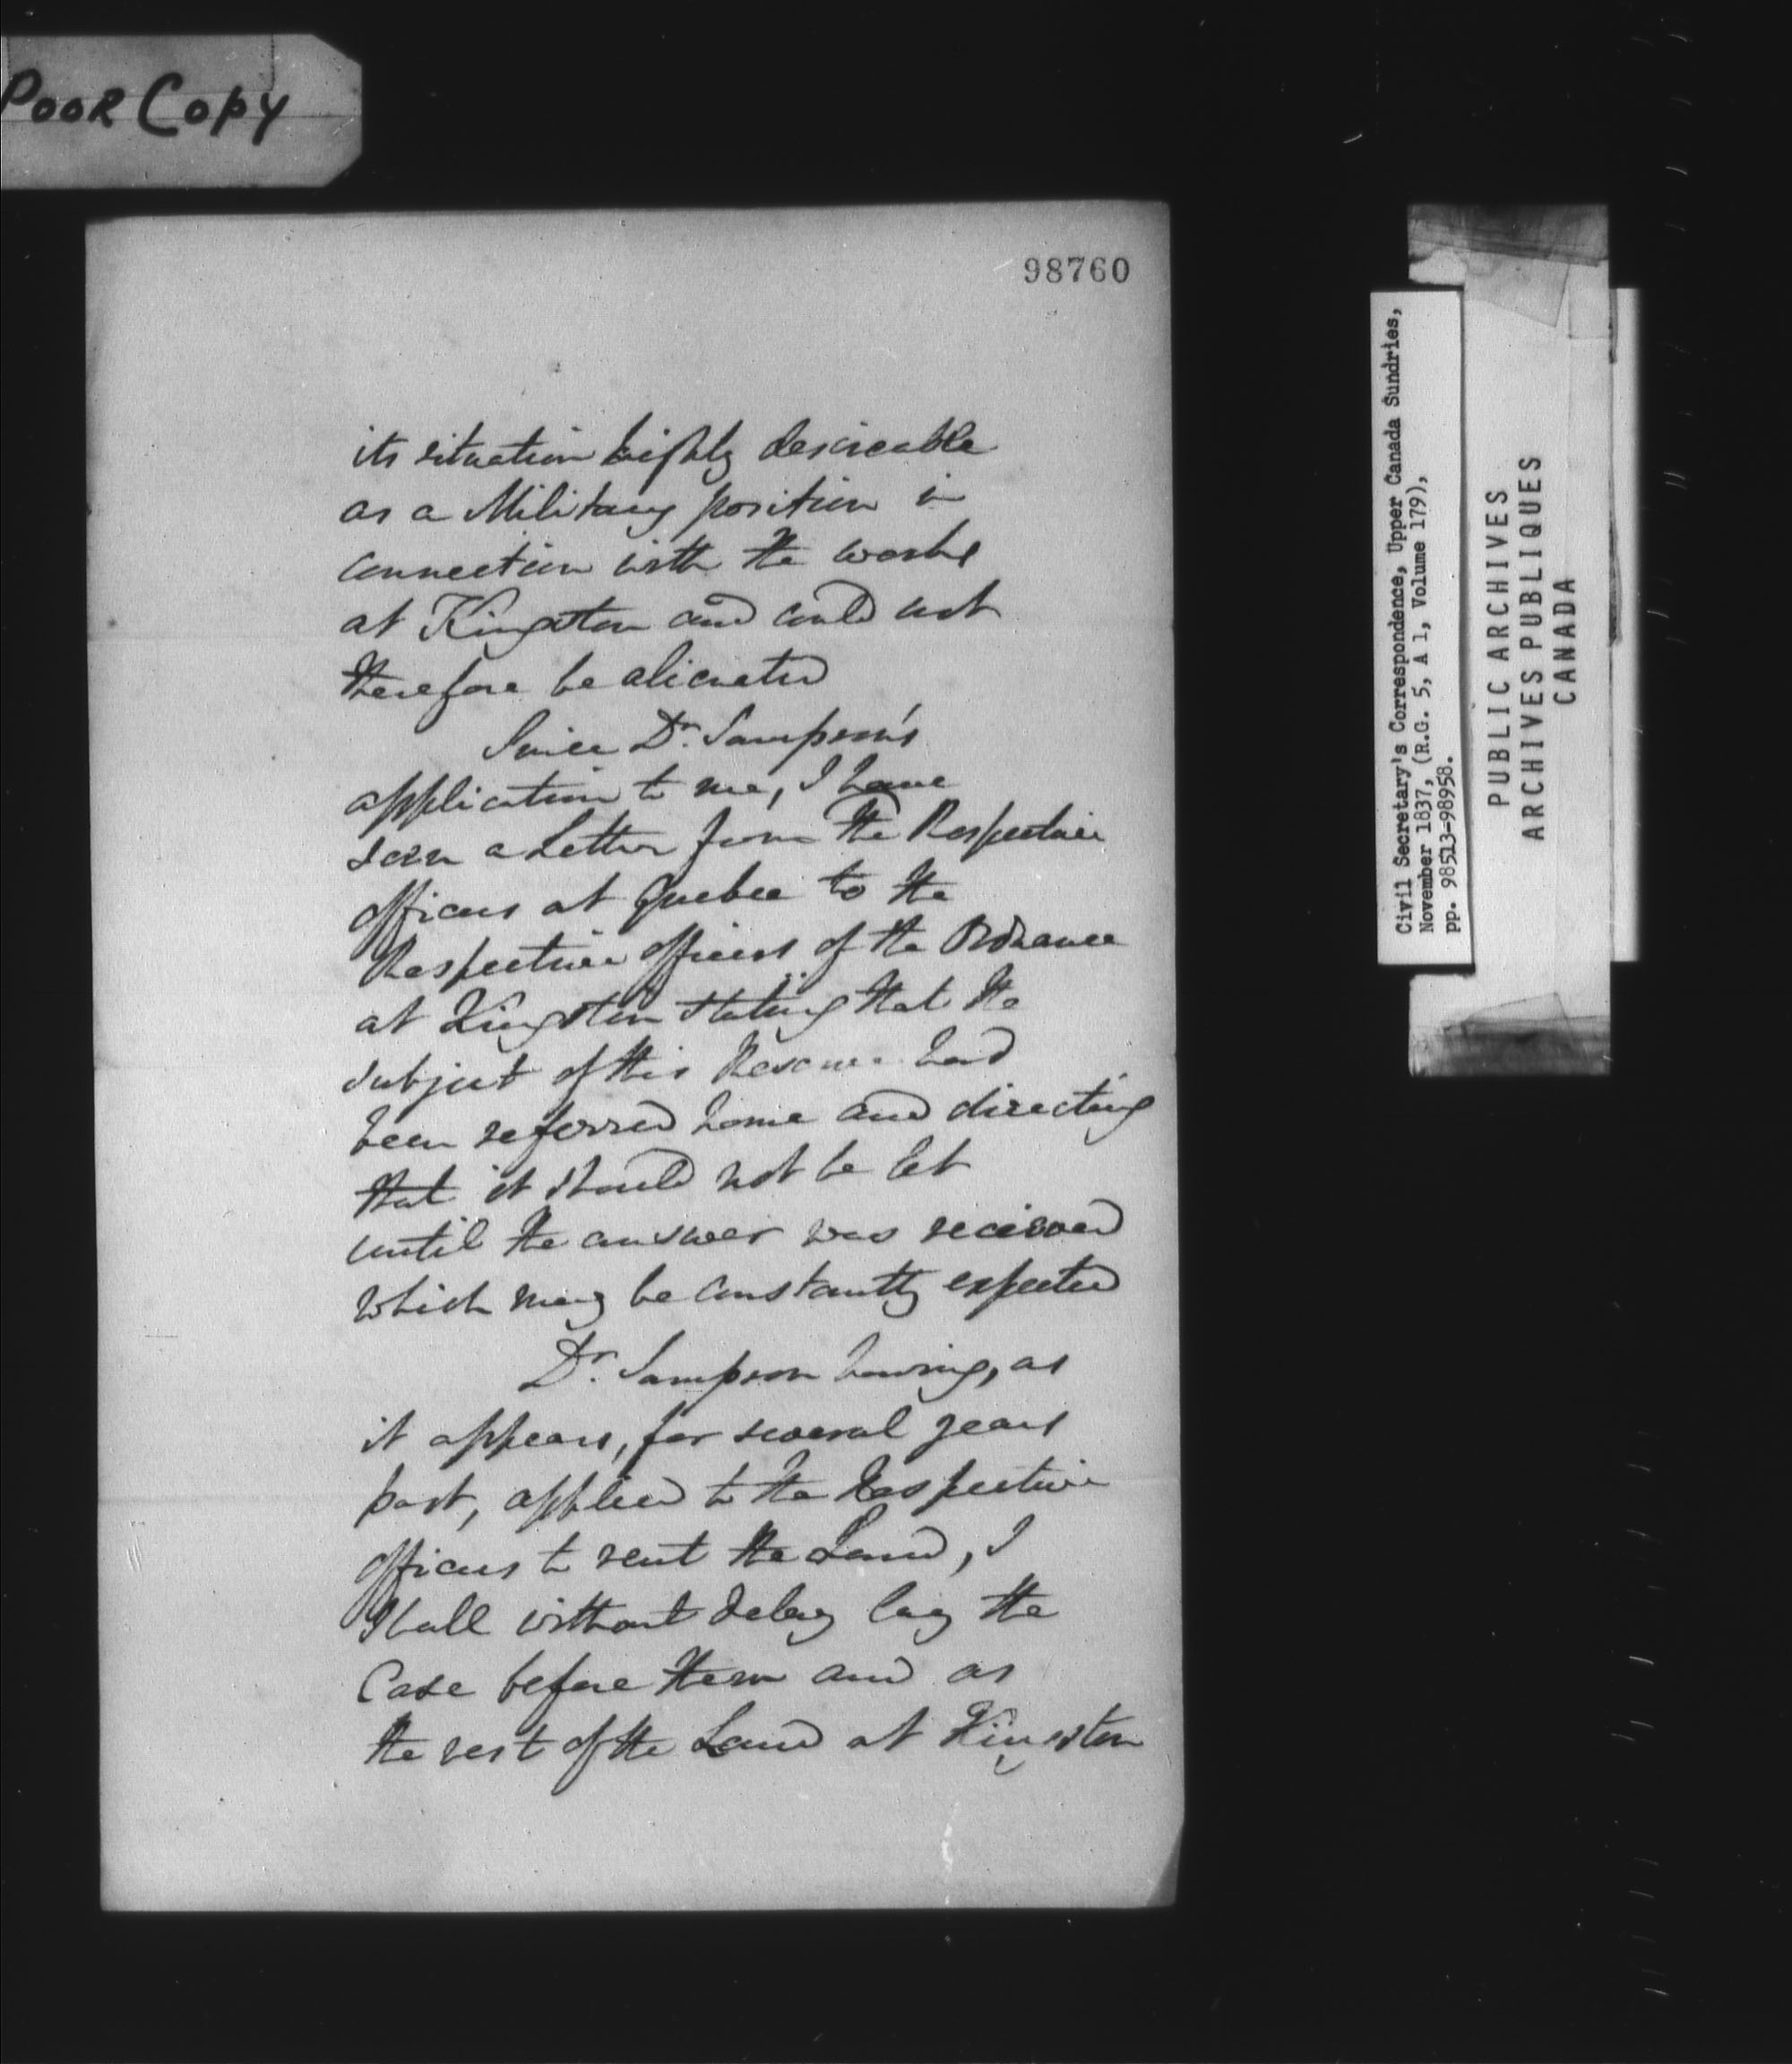 POOR COPY
98760
its situation highly desireable
as a Military position in
connection with the works
at Kingston and could not
therefore be alienated
Since Dr. Sampson's
application to me, I have
seen a Letter from the Respective
officers at Quebec to the
Respective officers of the Ordnance
at Kingston stating that the
subject of this Reserve had
been referred home and directing
that it should not be let
until the answer was received
which may be constantly expected
Dr. Sampson having, as
it appears, for several years
past, applied to the Respective
officers to rent the Land, I
Shall without delay lay the
Case before them and as
the rest of the Land at Kingston
Civil Secretary's Correspondence, Upper Canada Sundries,
November 1837, (R.G. 5, A 1, Volume 179),
pp. 98513-98958.
PUBLIC ARCHIVES
ARCHIVES PUBLIQUES
CANADA